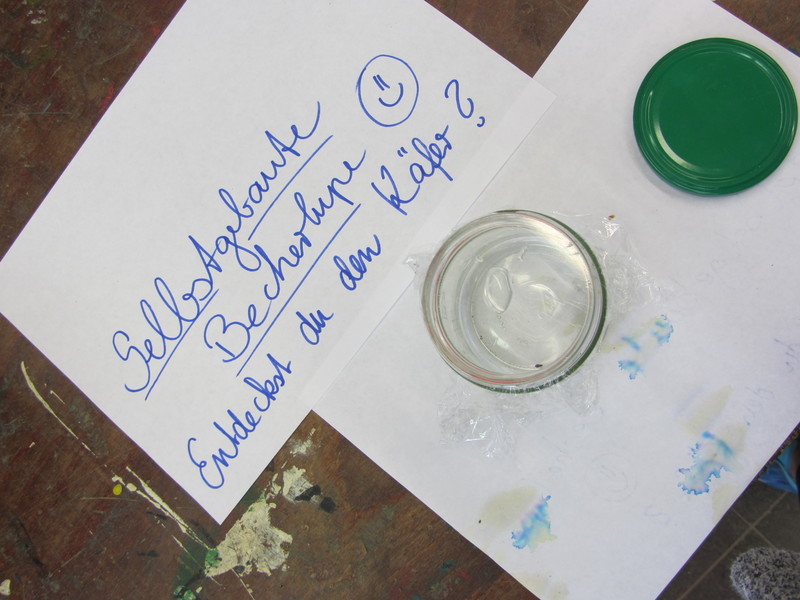 Selbstgebaute
Becherlupe
Entdeckst du den Käfer?